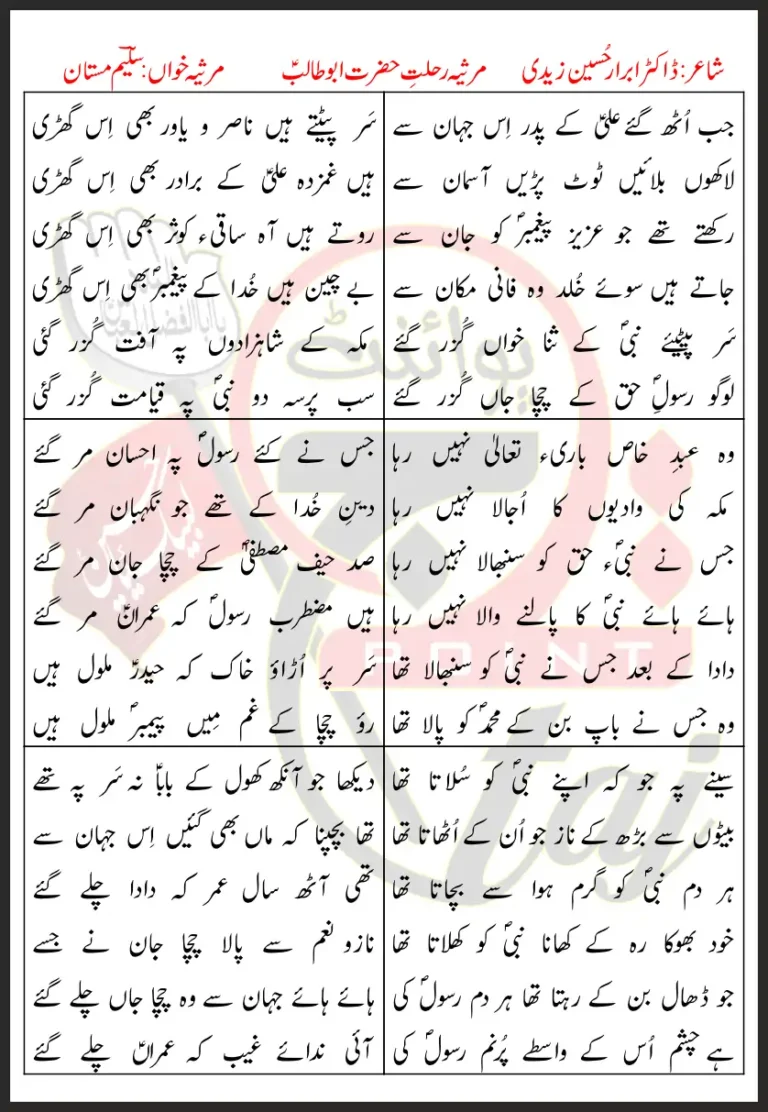 شاعر: ڈاکٹر ابرار حُسین زیدی    مرثیہ رحلتِ حضرت ابو طالبؑ    مرثیہ خواں: سلیم مستان
جب اُٹھ گئے علیؑ کے پدر اِس جہان سے
لاکھوں بلائیں ٹوٹ پڑیں آسمان سے
رکھتے تھے جو عزیز پیغمبرؐ کو جان سے
جاتے ہیں سوئے خُلد وہ فانی مکان سے
سَر پیٹیئے نبیؐ کے ثنا خواں گُزر گئے
لوگو رسولِؐ حق کے چچا جاں گُزر گئے
سَر پیٹتے ہیں ناصر و یاور بھی اِس گھڑی
ہیں غمزدہ علیؑ کے برادر بھی اِس گھڑی
روتے ہیں آہ ساقیٔ کوثر بھی اِس گھڑی
بے چین ہیں خُدا کے پیغمبرؐ بھی اِس گھڑی
مکہ کے شاہزادوں پہ آفت گُزر گئی
سب پرسہ دو نبیؐ پہ قیامت گُزر گئی
وہ عبدِ خاص باریء تعالیٰ نہیں رہا
مکہ کی وادیوں کا اُجالا نہیں رہا
جس نے نبیؐء حق کو سنبھالا نہیں رہا
ہائے ہائے نبیؐ کا پالنے والا نہیں رہا
دادا کے بعد جس نے نبیؐ کو سنبھالا تھا
وہ جس نے باپ بن کے محمدؐ کو پالا تھا
جس نے کئے رسولؐ پہ احسان مر گئے
دینِ خُدا کے تھے جو نگہبان مر گئے
صد حیف مصطفیٰؐ کے چچا جان مر گئے
ہیں مضطرب رسولؐ کہ عمرانؑ مر گئے
سَر پر اُڑاؤ خاک کہ حیدرؑ ملول ہیں
رؤ چچا کے غم مِیں پیمبرؐ ملول ہیں
سینے پہ جو کہ اپنے نبیؐ کو سُلاتا تھا
بیٹوں سے بڑھ کے ناز جو اُن کے اُٹھاتا تھا
ہر دم نبیؐ کو گرم ہوا سے بچاتا تھا
خود بھوکا رہ کے کھانا نبیؐ کو کھلاتا تھا
جو ڈھال بن کے رہتا تھا ہر دم رسولؐ کی
ہے چشم اُس کے واسطے پُرنم رسولؐ کی
دیکھا جو آنکھ کھول کے باباؑ نہ سَر پہ تھے
تھا بچپنا کہ ماں بھی گئیں اِس جہان سے
تھی آٹھ سال عمر کہ دادا چلے گئے
نازو نعم سے پالا چچا جان نے جسے
ہائے ہائے جہان سے وہ چچا جاں چلے گئے
آئی ندائے غیب کہ عمراںؑ چلے گئے
پوائنٹ
POINT
taj